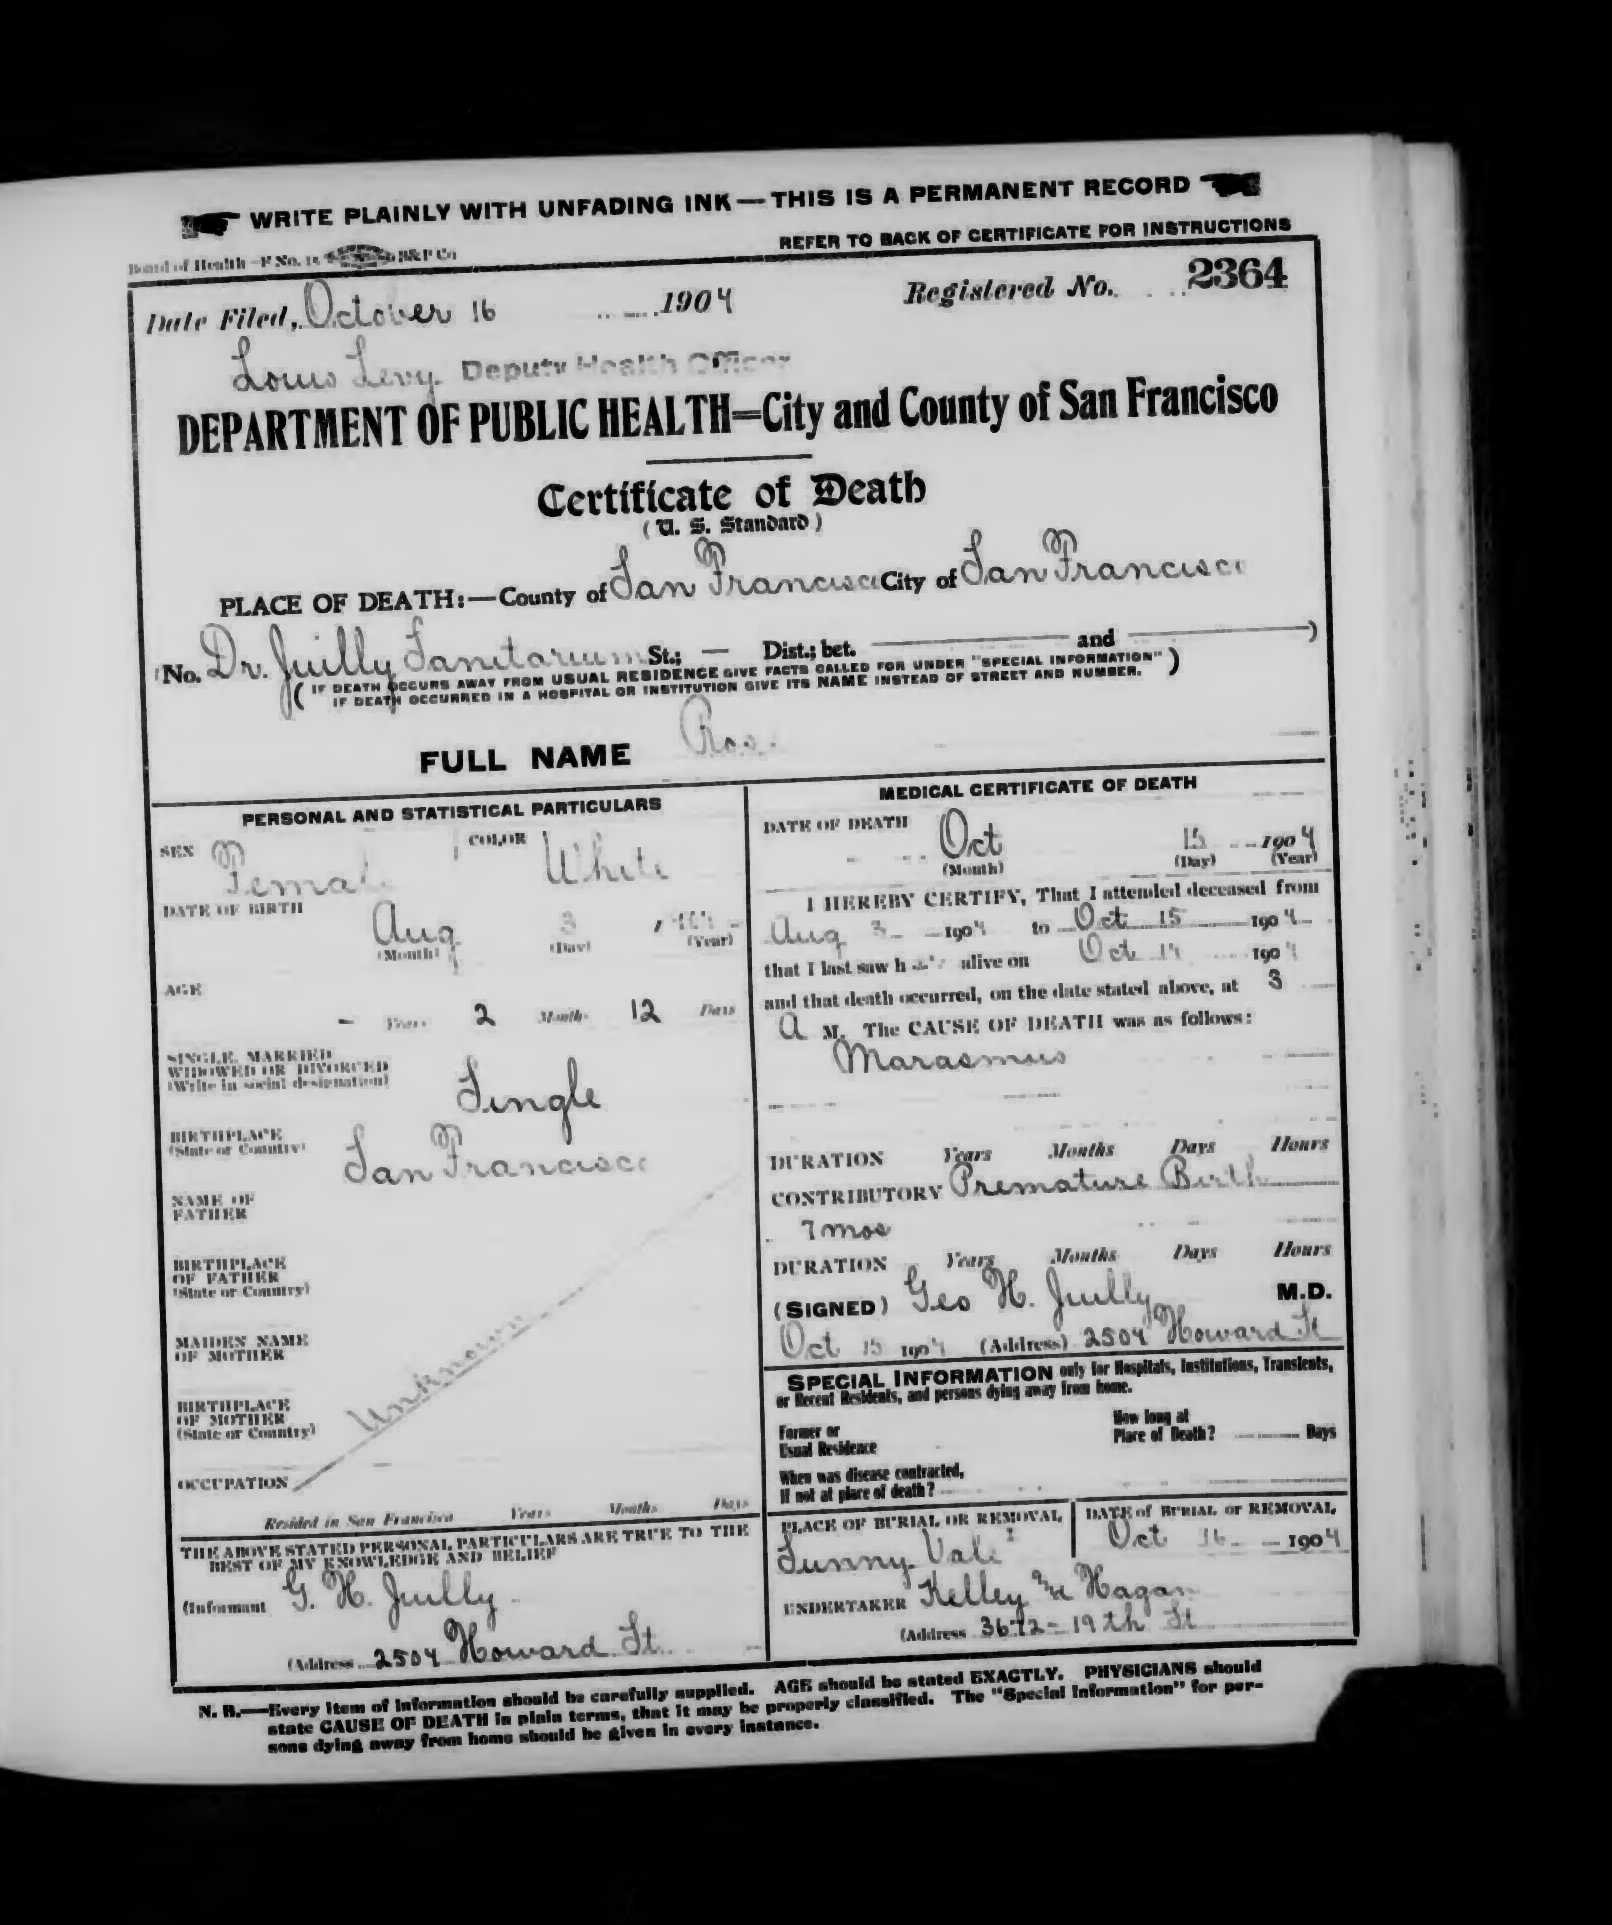 WRITE PLAINLY WITH UNFADING INK—THIS IS A PERMANENT RECORD
Board of Health—F No. 15 B&P Co
REFER TO BACK OF CERTIFICATE FOR INSTRUCTIONS
Date Filed, October 16 1904 Registered No. 2364
Louis Levy Deputy Health Officer
DEPARTMENT OF PUBLIC HEALTH=City and County of San Francisco
Certificate of Death
(U. S. Standard)
PLACE OF DEATH:—County of San Francisco City of San Francisco
(No. Dr. Juilly Sanitarium St.; — Dist.; bet. and )
( IF DEATH OCCURS AWAY FROM USUAL RESIDENCE GIVE FACTS CALLED FOR UNDER "SPECIAL INFORMATION" )
IF DEATH OCCURRED IN A HOSPITAL OR INSTITUTION GIVE ITS NAME INSTEAD OF STREET AND NUMBER.
FULL NAME
PERSONAL AND STATISTICAL PARTICULARS
SEX Female COLOR White
DATE OF BIRTH Aug 3
(Month) (Day) (Year)
AGE
– Years 2 Months 12 Days
SINGLE, MARRIED
WIDOWED OR DIVORCED
(Write in social designation) Single
BIRTHPLACE
(State or Country) San Francisco
NAME OF
FATHER
BIRTHPLACE
OF FATHER
(State or Country)
MAIDEN NAME
OF MOTHER
Unknown
BIRTHPLACE
OF MOTHER
(State or Country)
OCCUPATION
Resided in San Francisco Years Months Days
THE ABOVE STATED PERSONAL PARTICULARS ARE TRUE TO THE
BEST OF MY KNOWLEDGE AND BELIEF
(Informant G. H. Juilly
(Address 2504 Howard St.
MEDICAL CERTIFICATE OF DEATH
DATE OF DEATH Oct 15 1904
(Month) (Day) (Year)
I HEREBY CERTIFY, That I attended deceased from
Aug 3 1904 to Oct 15 1904
that I last saw h alive on Oct 14 1904
and that death occurred, on the date stated above, at 3
A M. The CAUSE OF DEATH was as follows:
Marasmus
DURATION Years Months Days Hours
CONTRIBUTORY Premature Birth
7 mos
DURATION Years Months Days Hours
(SIGNED) Geo H. Juilly M.D.
Oct 15 1904 (Address) 2504 Howard St
SPECIAL INFORMATION only for Hospitals, Institutions, Transients,
or Recent Residents, and persons dying away from home.
Former or
Usual Residence
How long at
Place of Death? Days
When was disease contracted,
If not at place of death?
PLACE OF BURIAL OR REMOVAL
Sunny Vale
DATE of BURIAL or REMOVAL
Oct 16 1904
UNDERTAKER Kelley Hagan
(Address 3672 - 19th St
N. B.—Every item of information should be carefully supplied. AGE should be stated EXACTLY. PHYSICIANS should
state CAUSE OF DEATH in plain terms, that it may be properly classified. The "Special Information" for per-
sons dying away from home should be given in every instance.